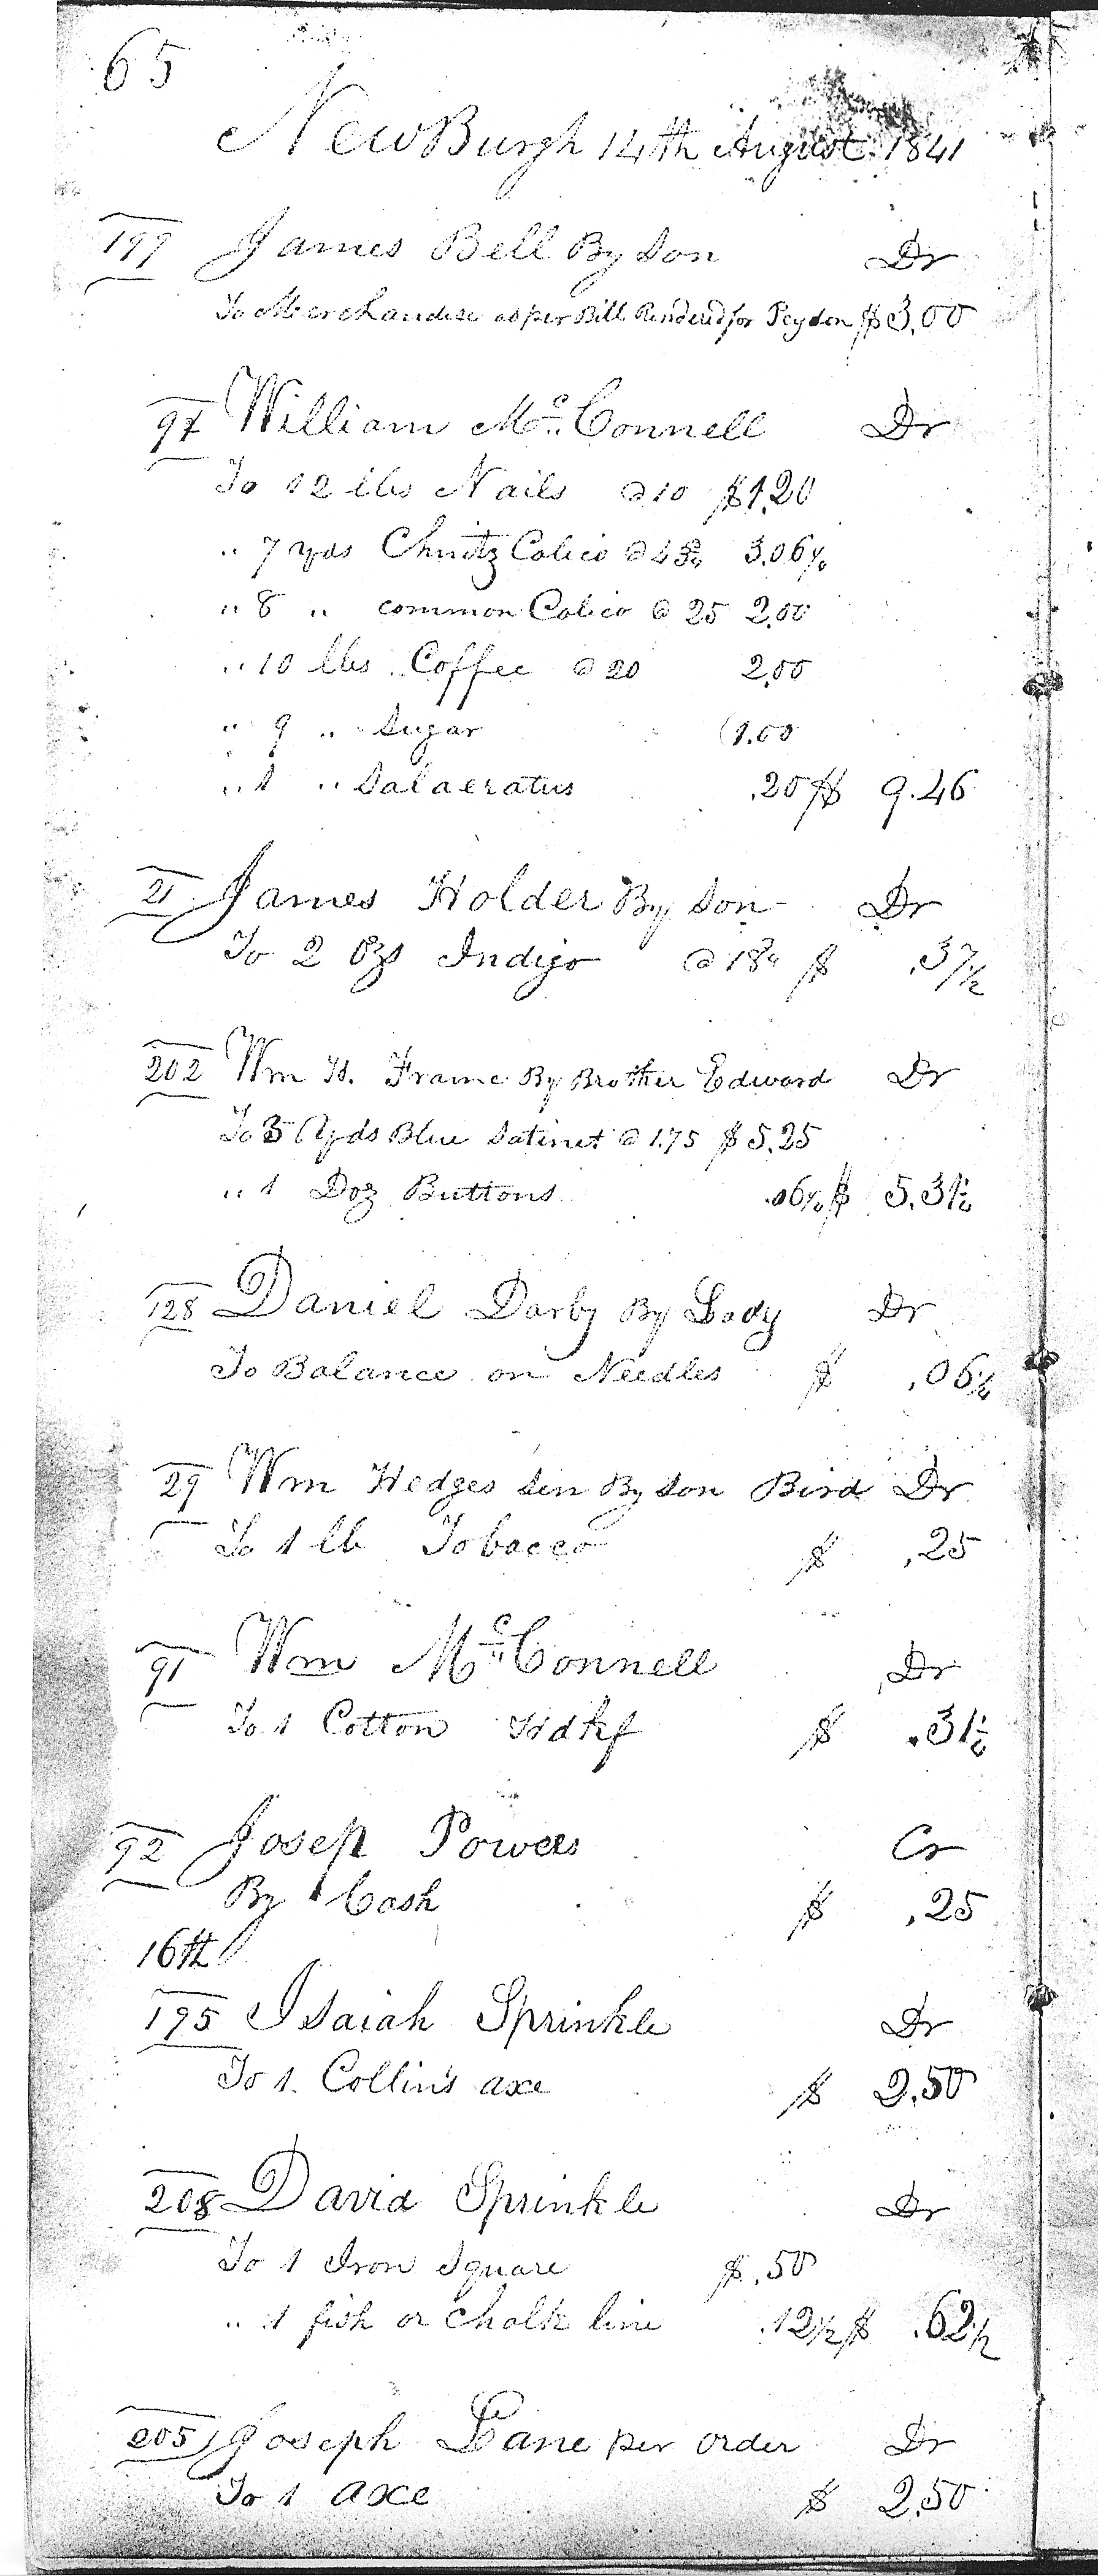 65
NewBurgh 14th August 1841
199 James Bell By Son Dr
To Merchandise as per Bill Rendered for Peyton $3.00
97 William McConnell Dr
To 12 lbs Nails @10 $1.20
" 7 yds Chintz Calico @ 43¾ 3.06¼
" 8 " common Calico @ 25 2.00
" 10 lbs Coffee @20 2.00
" 9 " Sugar 1.00
" 1 " Salaeratus .20 $ 9.46
21 James Holder By Son Dr
To 2 Ozs Indigo @ 18¾ $ .37½
202 Wm H. Frame By Brother Edward Dr
To 3 yds Blue Satinet @ 1.75 $5.25
" 1 Doz Buttons .06¼ $ 5.31¼
128 Daniel Darby By Lady Dr
To Balance on Needles $ .06¼
29 Wm Hedges Sen By Son Bird Dr
To 1 lb Tobacco $ .25
91 Wm McConnell Dr
To 1 Cotton Hdkf $ .31¼
92 Josep Powers Cr
By Cash $ .25
16th
195 Isaiah Sprinkle Dr
To 1 Collins axe $ 2.50
208 David Sprinkle Dr
To 1 Iron Square $ .50
" 1 fish or chalk line .12½ $ .62½
205 Joseph Lane per order Dr
To 1 axe $ 2.50